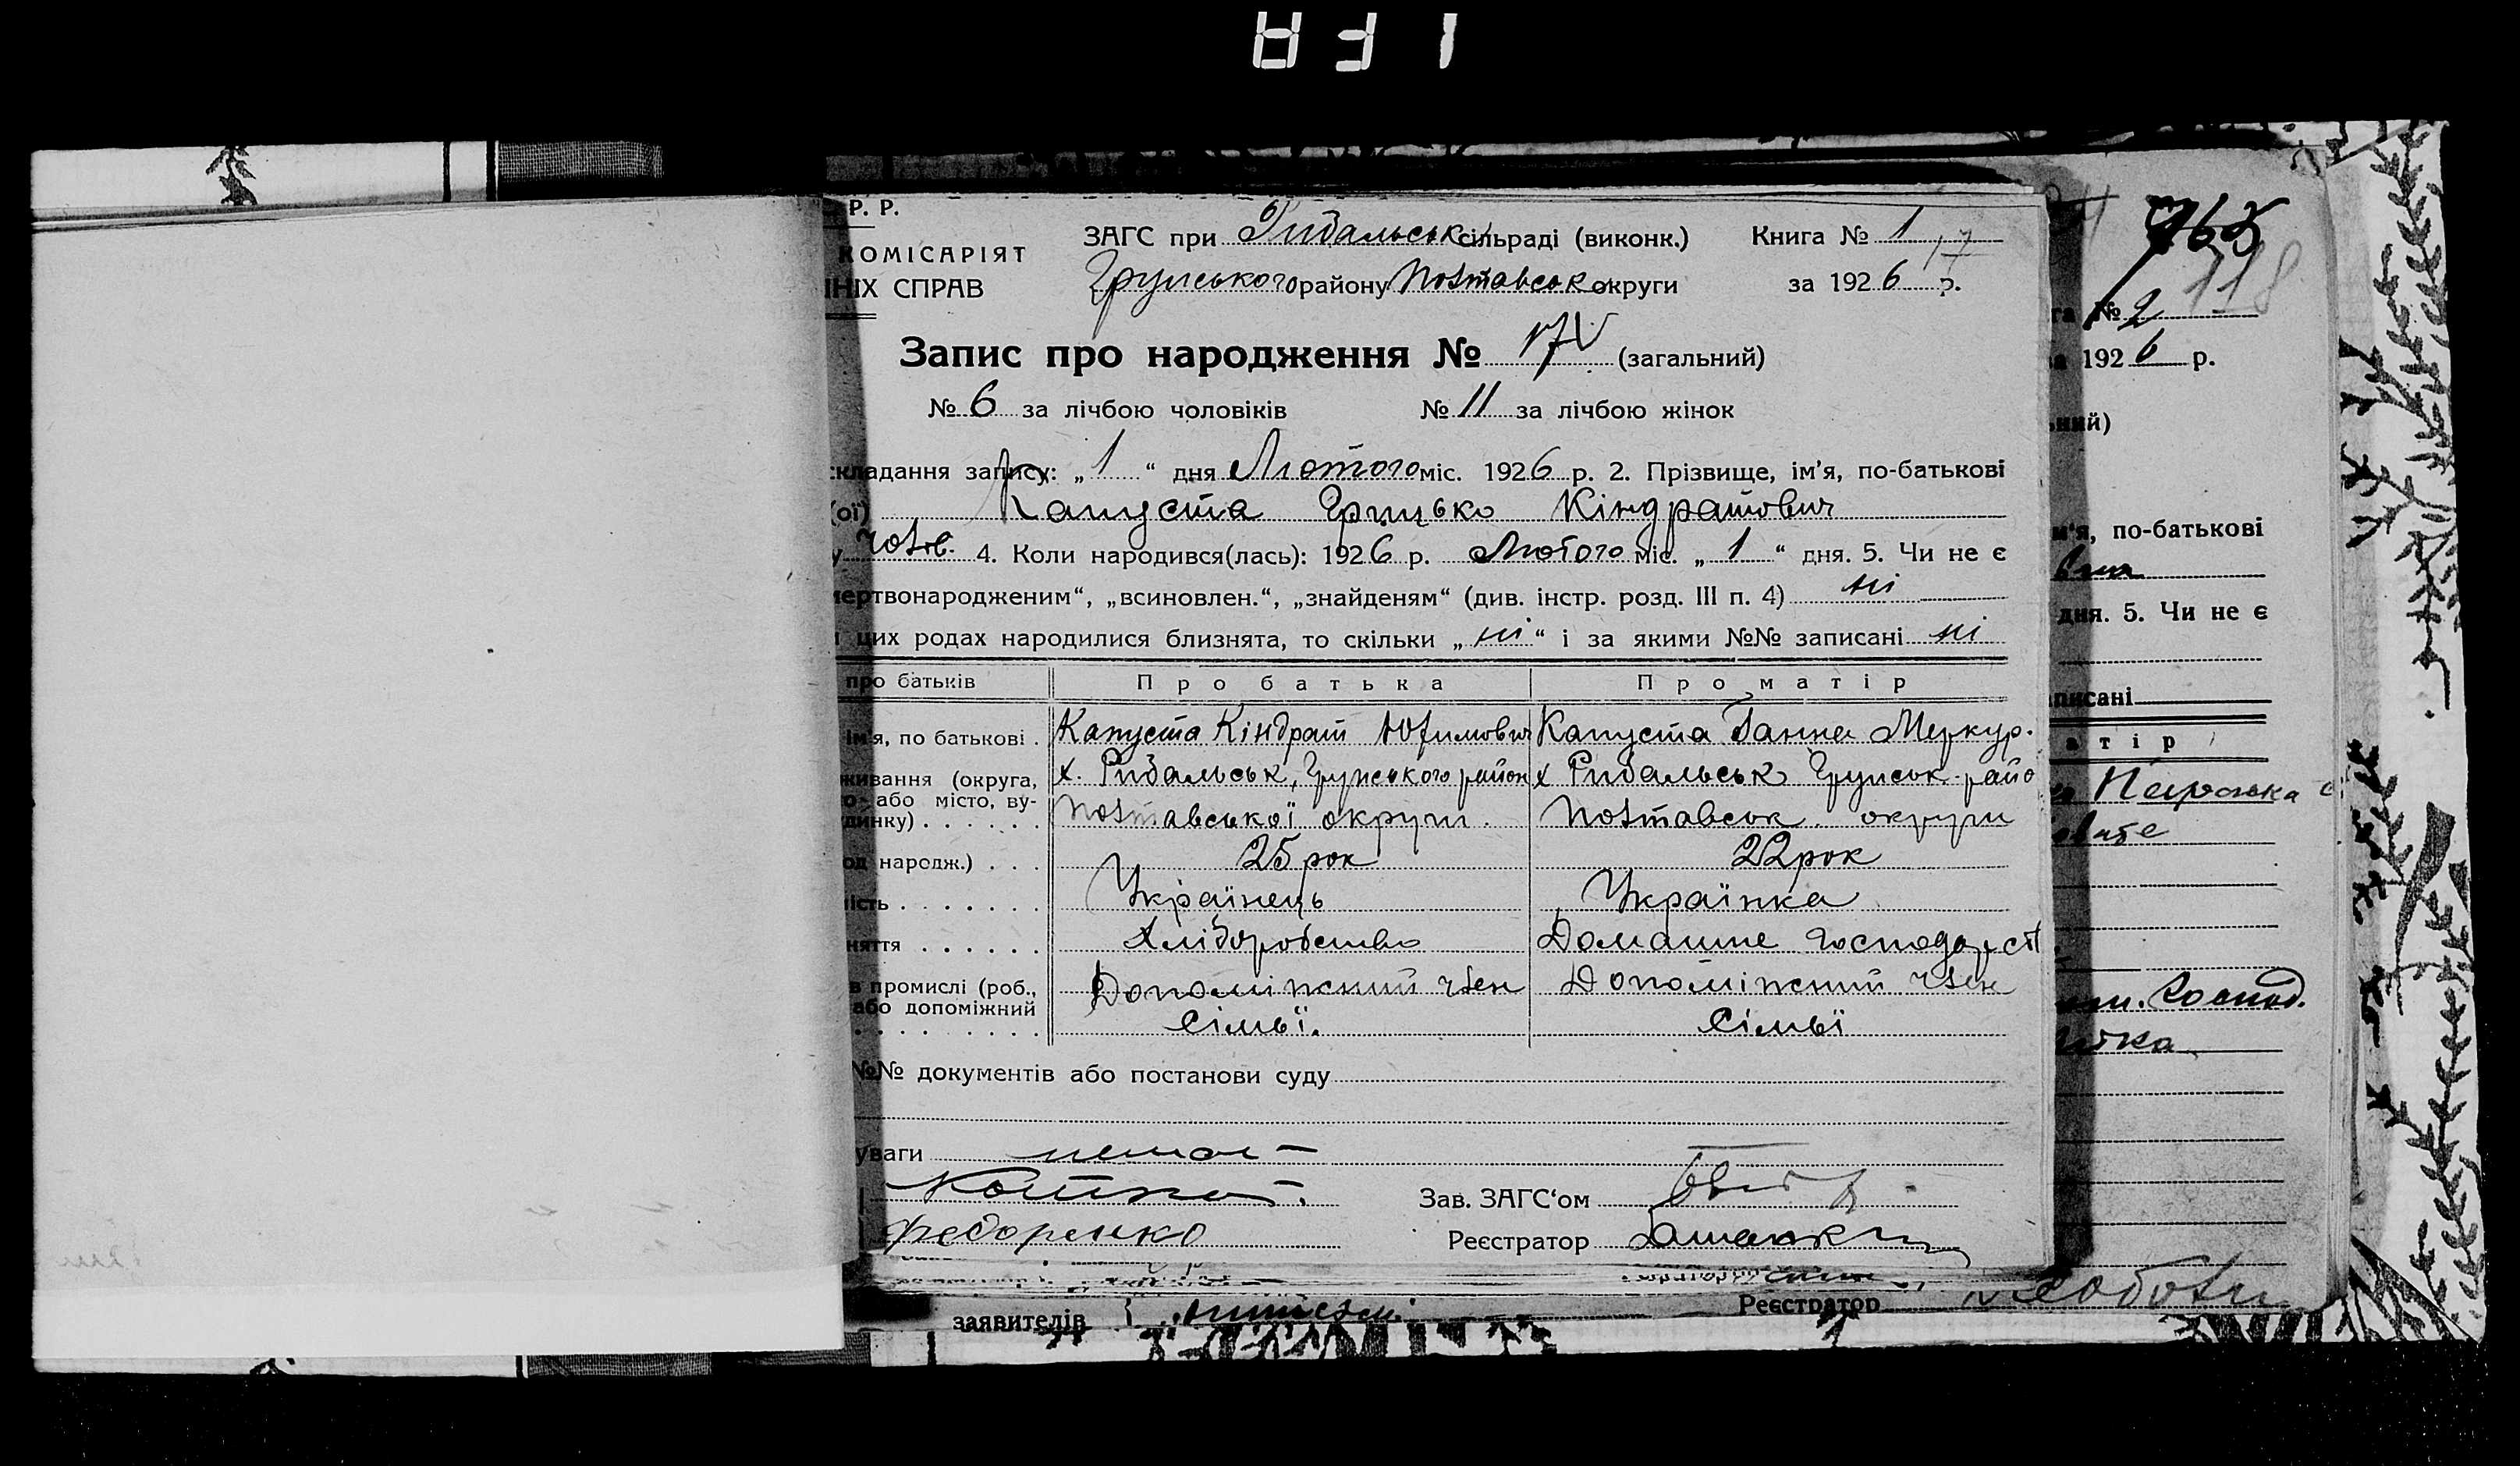 Р. Р.
ЗАГС при Рибальськ сільраді (виконк.) Книга № 1
КОМІСАРІЯТ
17
Грунського району Полтавськ округи за 1926 р.
НІХ СПРАВ
Запис про народження № 17 (загальний)
№ 6 за лічбою чоловіків № 11 за лічбою жінок
складання запису: „ 1 “ дня Лютого міс. 1926 р. 2. Прізвище, ім’я, по-батькові
(ої) Капуста Грицько Кіндратович
у чолов. 4. Коли народився(лась): 1926 р. Лютого міс. „ 1 “ дня. 5. Чи не є
мертвонародженим“, „всиновлен.“, „знайденям“ (див. інстр. розд. III п. 4) ні
цих родах народилися близнята, то скільки „ ні “ і за якими №№ записані ні
про батьків Про батька Про матір
ім’я, по батькові . Капуста Кіндрат Юхимович Капуста Ганна Меркур.
живання (округа, х. Рибальськ, Грунського район х Рибальськ Грунськ. райо
або місто, ву-
динку) . . . . . . Полтавської округи. Полтавськ. округи
од народж.) . . . 25 рок 22 рок
ість . . . . . . . Українець Українка
няття . . . . . . Хліборобство Домашнє господарст
в промислі (роб., Допоміжний член Допоміжний член
або допоміжний
. . . . . . . . . сімьї. сімьї
№№ документів або постанови суду
уваги нема
Зав. ЗАГС‘ом
Федоренко Реєстратор
заявителів Реєстратор
763
118
га № 2
за 1926 р.
ьний)
м‘я, по-батькові
дня. 5. Чи не є
аписані
а т і р
Господ.